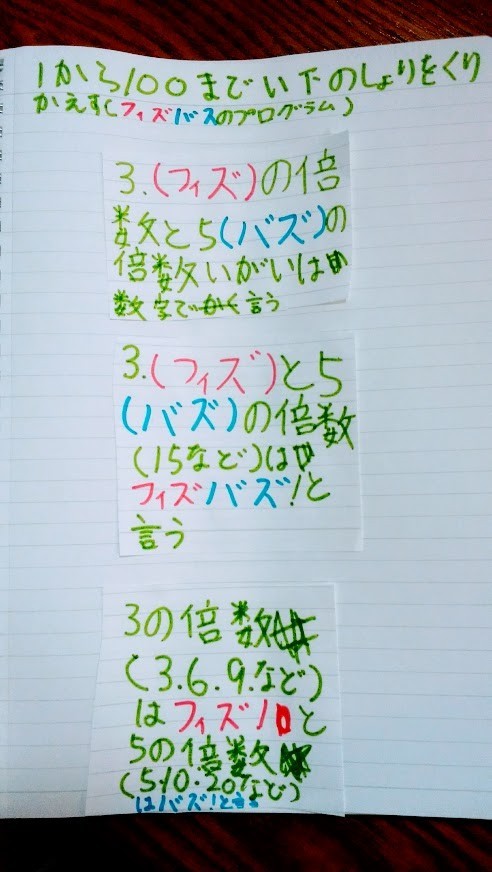 1から100までい下のしょりをくり
かえす(フィズバズのプログラム)
3.(フィズ)の倍
数と5(バズ)の
倍数いがいは
数字で言う
3.(フィズ)と5
(バズ)の倍数
(15など)は
フィズバズ!と
言う
3の倍数
(3.6.9.など)
はフィズ!と
5の倍数
(5.10.20など)
はバズ!と言う